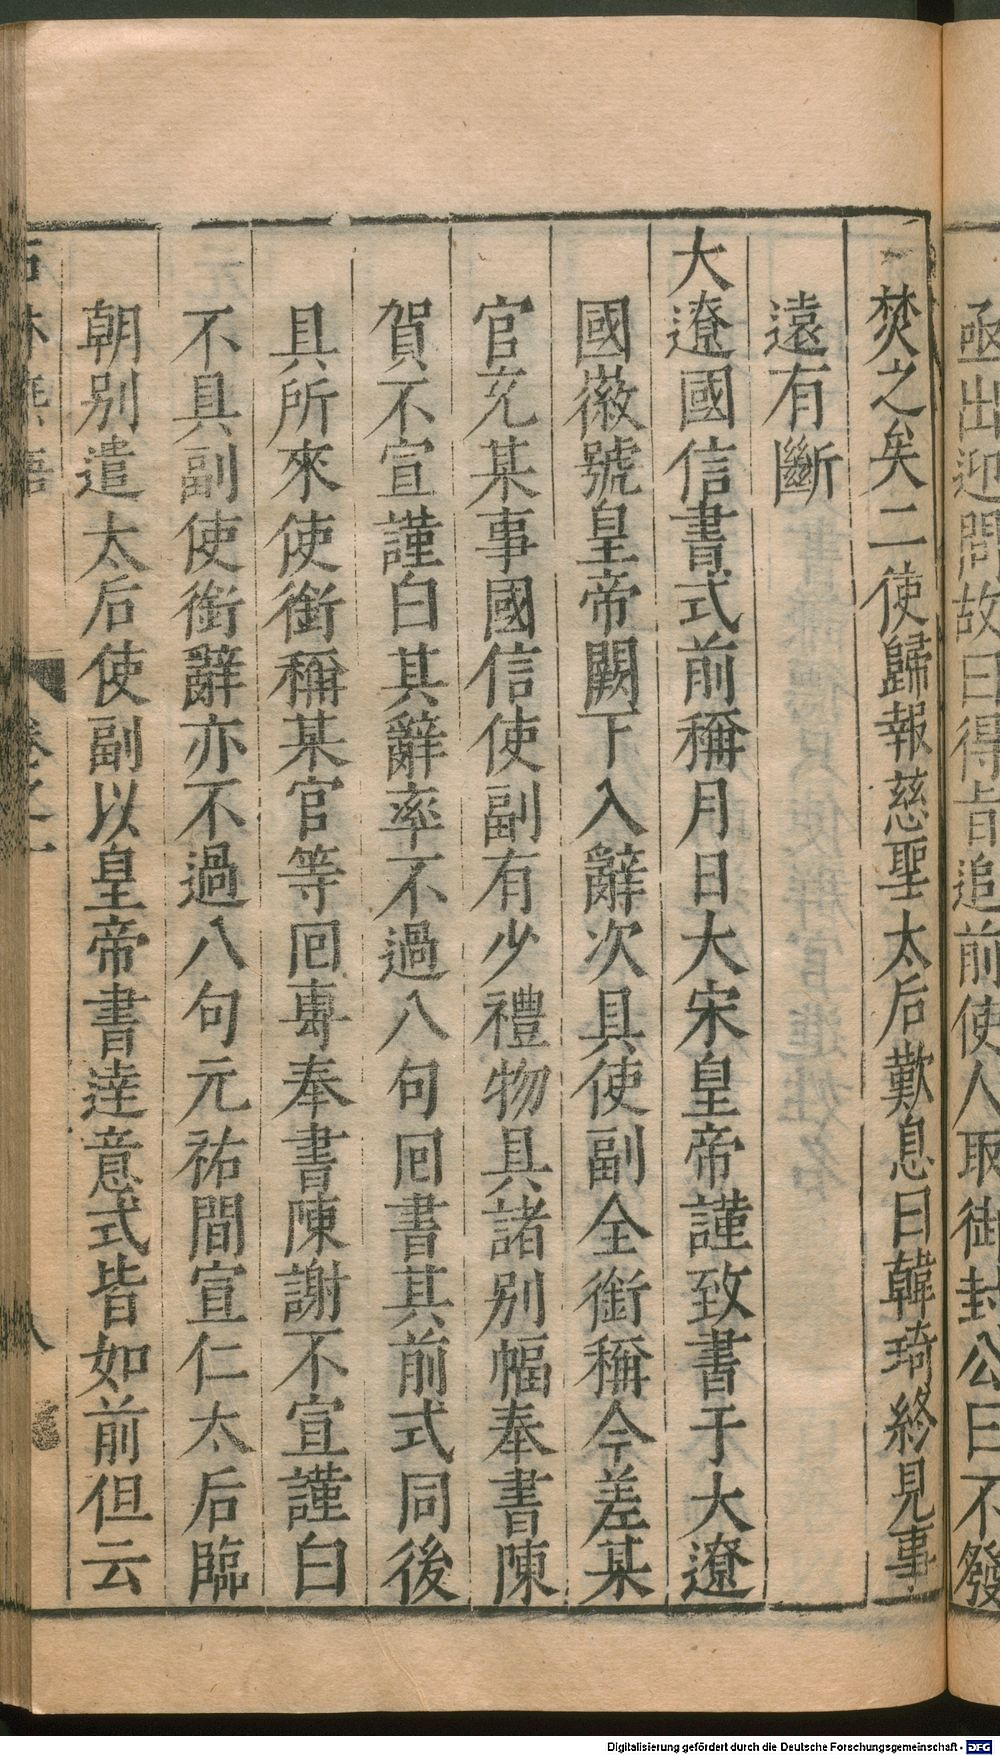 亟出迎問故曰得旨追前使人取御封公曰不發
焚之矣二使歸報慈聖太后歎息曰韓琦終見事
遠有斷
大遼國信書式前稱月日大宋皇帝謹致書于大遼
國徽號皇帝闕下入辭次具使副全銜稱今差某
官充某事國信使副有少禮物具諸別幅奉書陳
賀不宣謹白其辭率不過八句囘書其前式同後
具所來使銜稱某官等囘專奉書陳謝不宣謹白
不具副使銜辭亦不過八句元祐間宣仁太后臨
朝別遣太后使副以皇帝書逹意式皆如前但云
石林燕語 卷之二 八
Digitalisierung gefördert durch die Deutsche Forschungsgemeinschaft - DFG